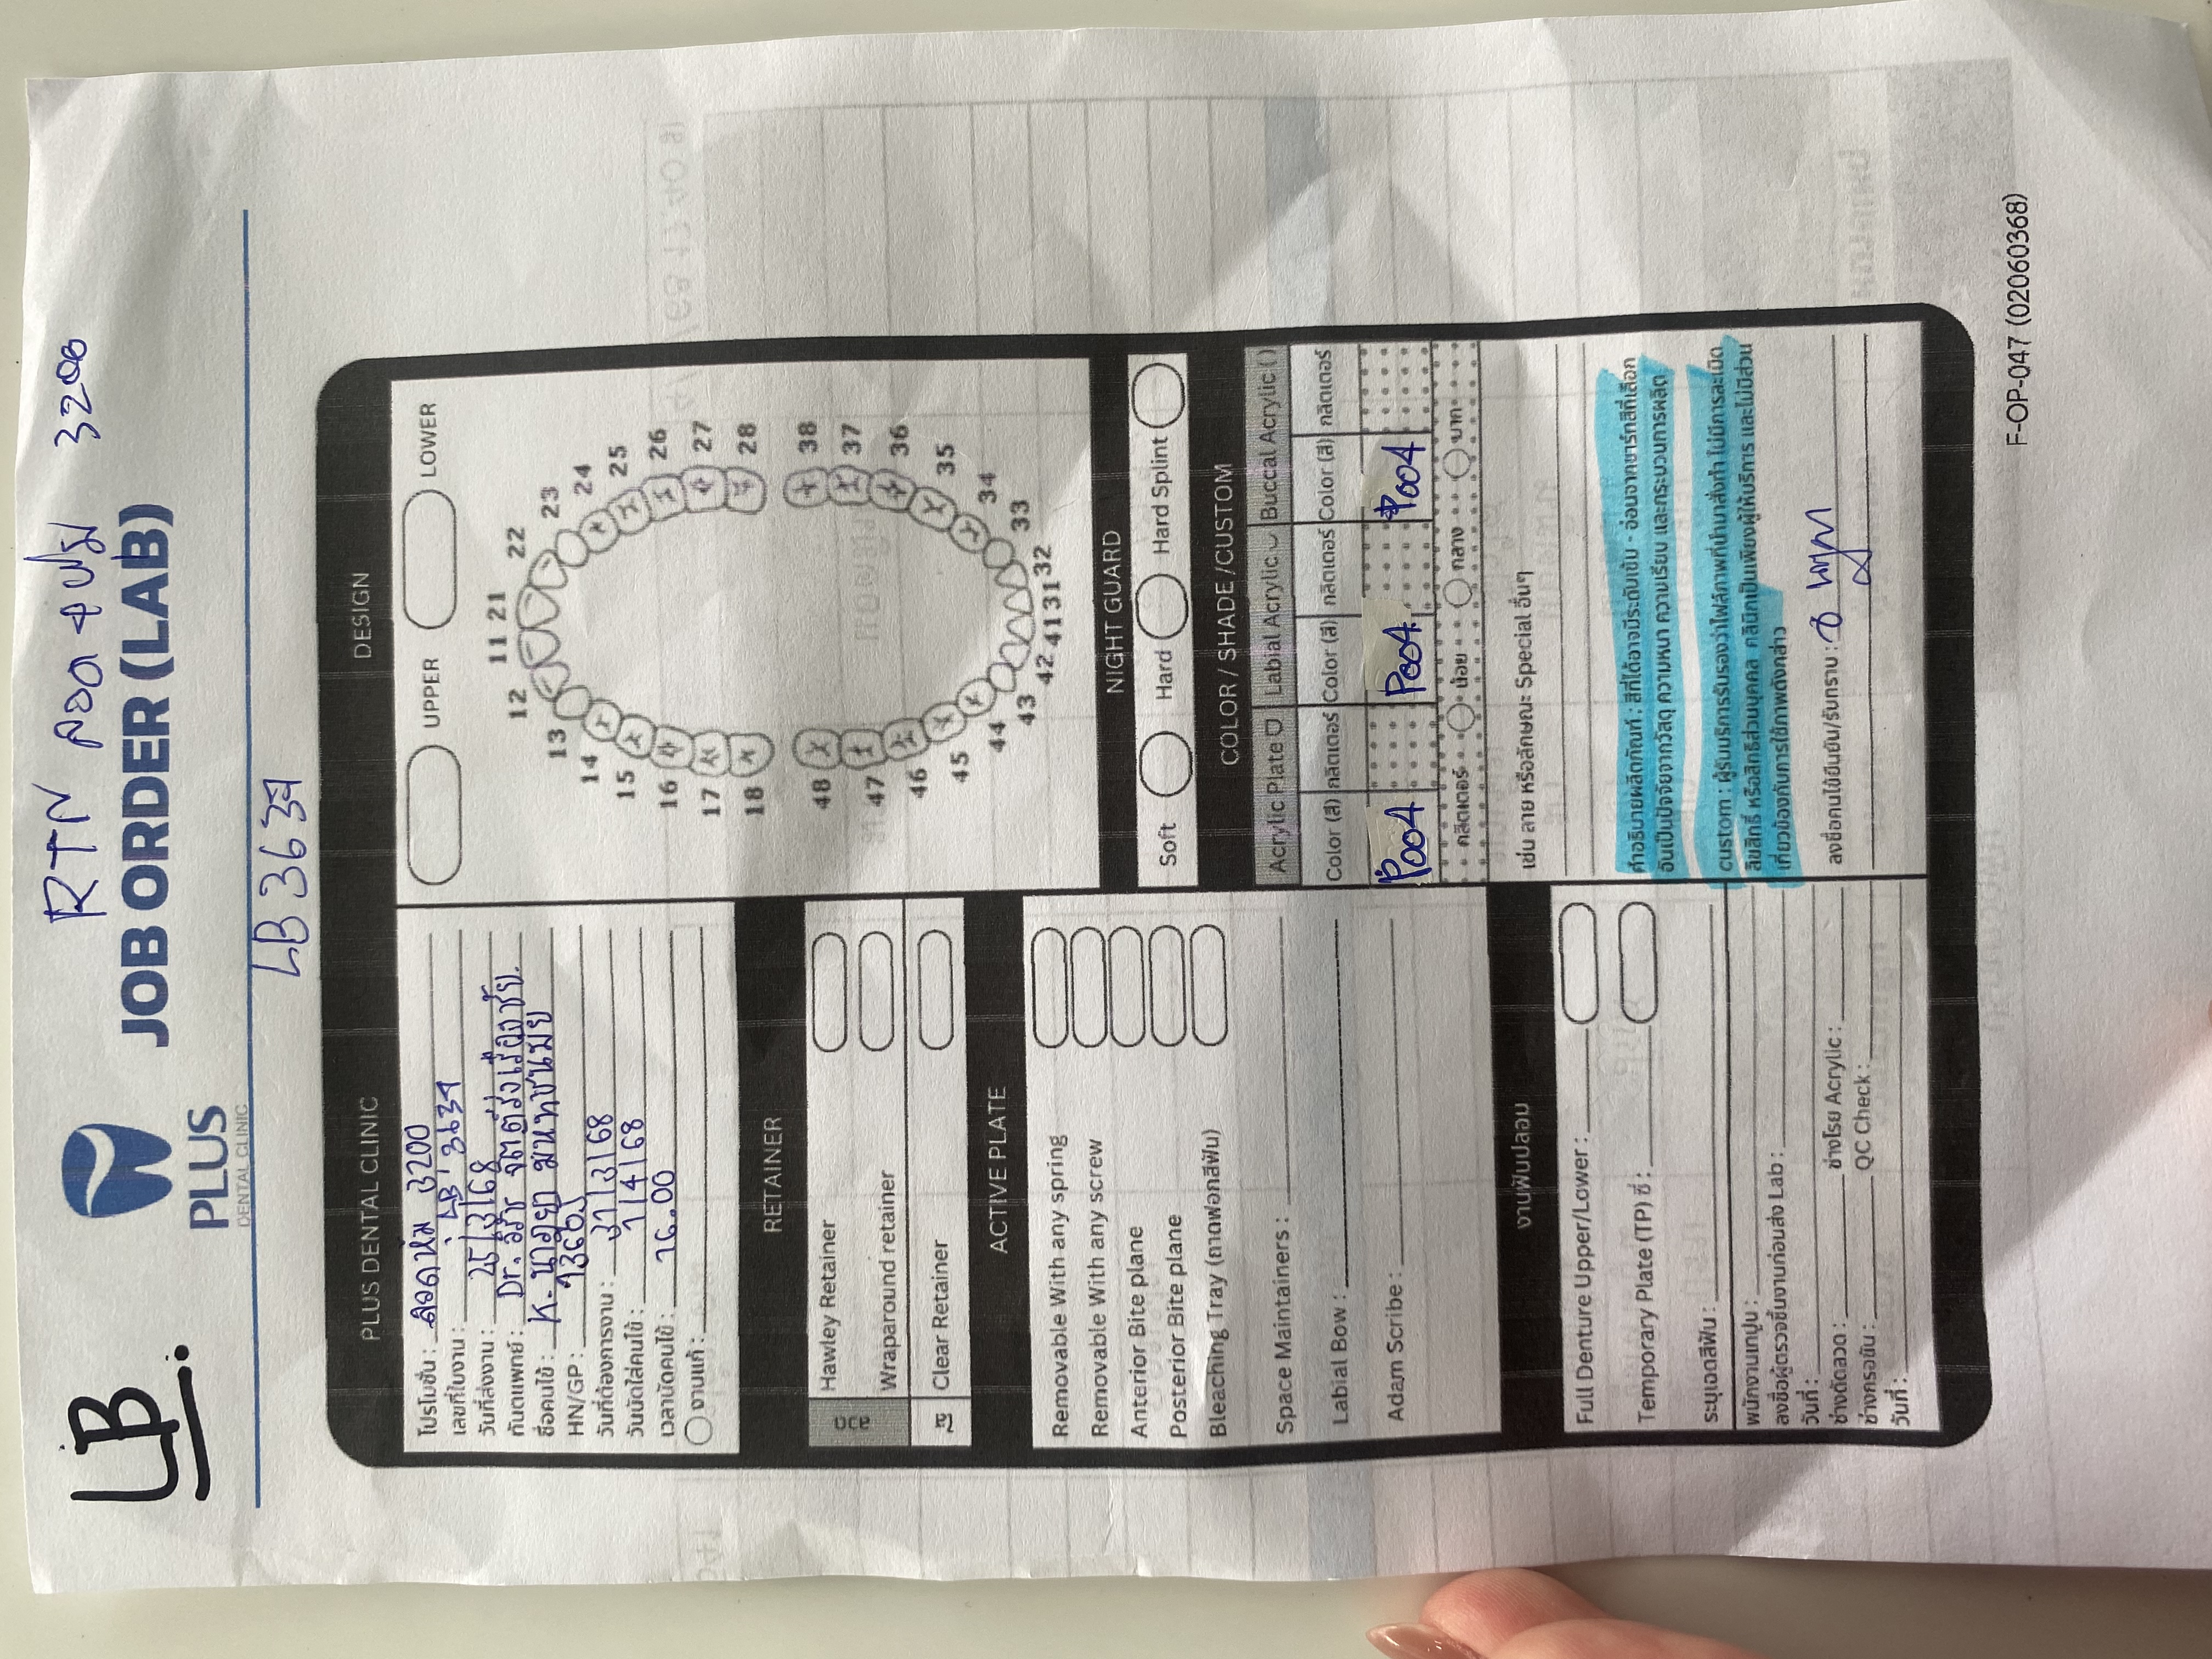 LB.
RTN ลวด 3200
PLUS
DENTAL CLINIC
JOB ORDER (LAB)
LB 3637
PLUS DENTAL CLINIC
โปรโมชั่น : ลวดหุ้ม 3200
เลขที่ใบงาน : LB 3637
วันที่ส่งงาน : 25/3/68
ทันตแพทย์ : Dr.
ชื่อคนไข้ : K.
HN/GP :
วันที่ต้องการงาน : 31/3/68
วันนัดใส่คนไข้ : 1/4/68
เวลานัดคนไข้ : 16.00
งานแก้ :
RETAINER
ลวด
Hawley Retainer
Wraparound retainer
ใส
Clear Retainer
ACTIVE PLATE
Removable With any spring
Removable With any screw
Anterior Bite plane
Posterior Bite plane
Bleaching Tray (ถาดฟอกสีฟัน)
Space Maintainers :
Labial Bow :
Adam Scribe :
งานฟันปลอม
Full Denture Upper/Lower :
Temporary Plate (TP) ซี่ :
ระบุเฉดสีฟัน :
พนักงานเทปูน :
ลงชื่อผู้ตรวจชิ้นงานก่อนส่ง Lab :
วันที่ :
ช่างดัดลวด : ช่างโรย Acrylic :
ช่างกรอขัน : QC Check :
วันที่ :
DESIGN
UPPER LOWER
11 21
12 22
13 23
14 24
15 25
16 26
17 27
18 28
48 38
47 37
46 36
45 35
44 34
43 33
42 41 31 32
NIGHT GUARD
Soft Hard Hard Splint
COLOR / SHADE /CUSTOM
Acrylic Plate Labial Acrylic Buccal Acrylic ( )
Color (สี) กลิตเตอร์ Color (สี) กลิตเตอร์ Color (สี) กลิตเตอร์
P004 P004 P004
กลิตเตอร์ น้อย กลาง มาก
เช่น ลาย หรือลักษณะ Special อื่นๆ
คำอธิบายผลิตภัณฑ์ : สีที่ได้อาจมีระดับเข้ม - อ่อนจากชาร์ทสีที่เลือก
อันเป็นปัจจัยจากวัสดุ ความหนา ความเรียบ และกระบวนการผลิต
custom : ผู้รับบริการรับรองว่าไฟล์ภาพที่นำมาสั่งทำ ไม่มีการละเมิด
ลิขสิทธิ์ หรือสิทธิส่วนบุคคล คลินิกเป็นเพียงผู้ให้บริการ และไม่มีส่วน
เกี่ยวข้องกับการใช้ภาพดังกล่าว
ลงชื่อคนไข้ยืนยัน/รับทราบ :
F-OP-047 (02060368)